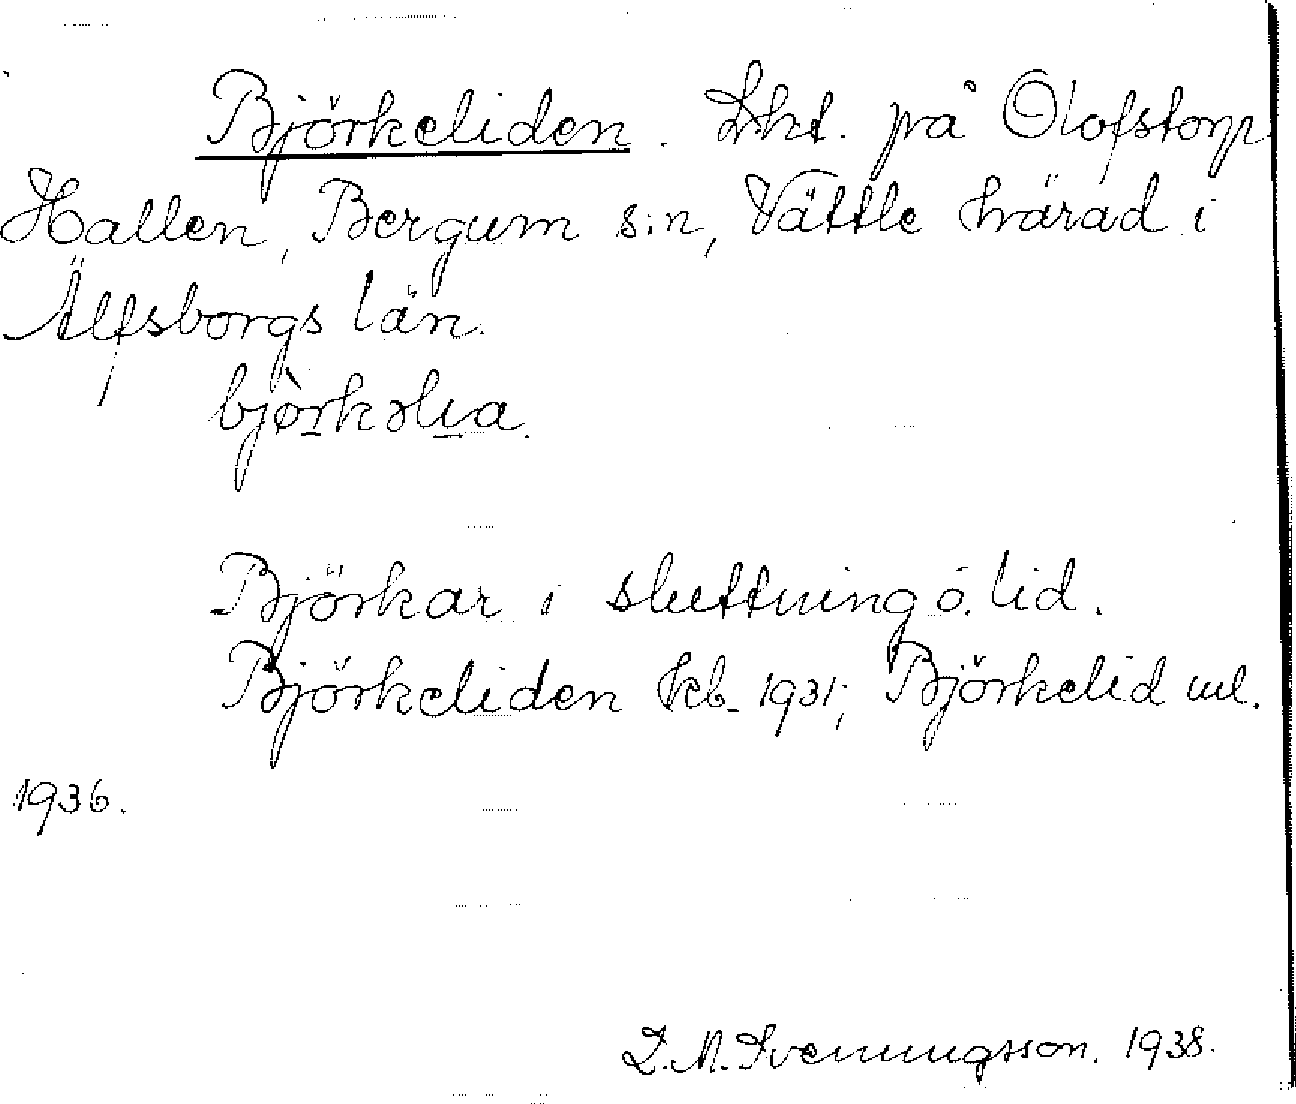 Björkeliden. Lht. på Olofstorp
Hallen, Bergum s:n, Vättle härad i
Älfsborgs län.
bjòrkəlıa.
Björkar i sluttning ö. lid.
Björkeliden Jeb. 1931; Björkelid ul.
1936.
D. N. Svenningsson. 1938.